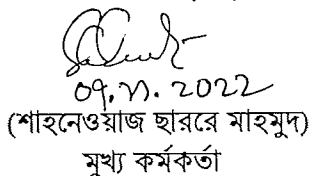 ০৭.১১.2022
(শাহনেওয়াজ ছাররে মাহমুদ)
মুখ্য কর্মকর্তা